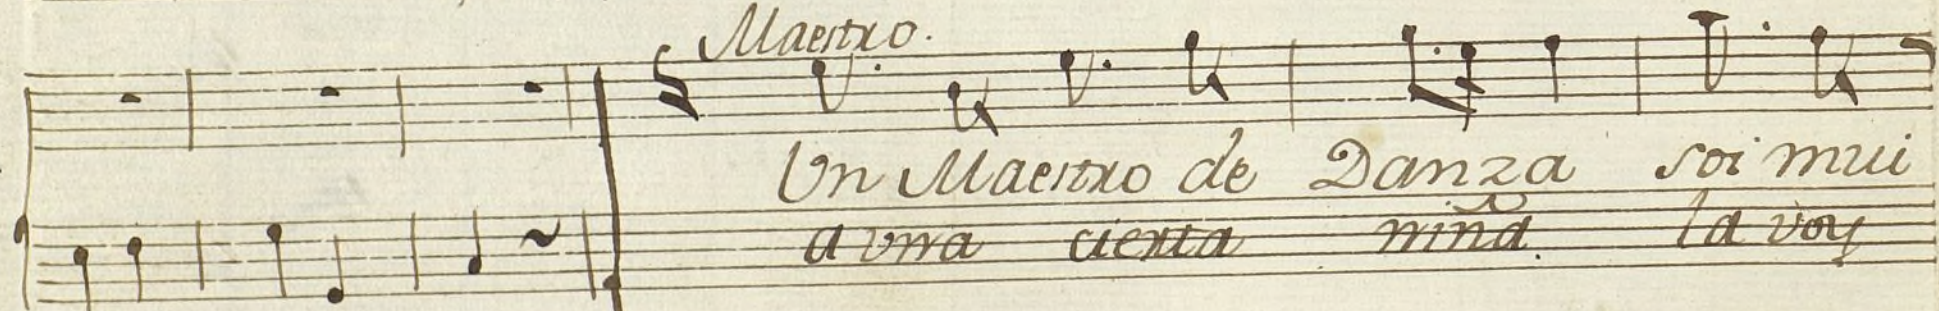 Maestro.
Un Maestro de Danza soi mui
a vna cierta niña la voy